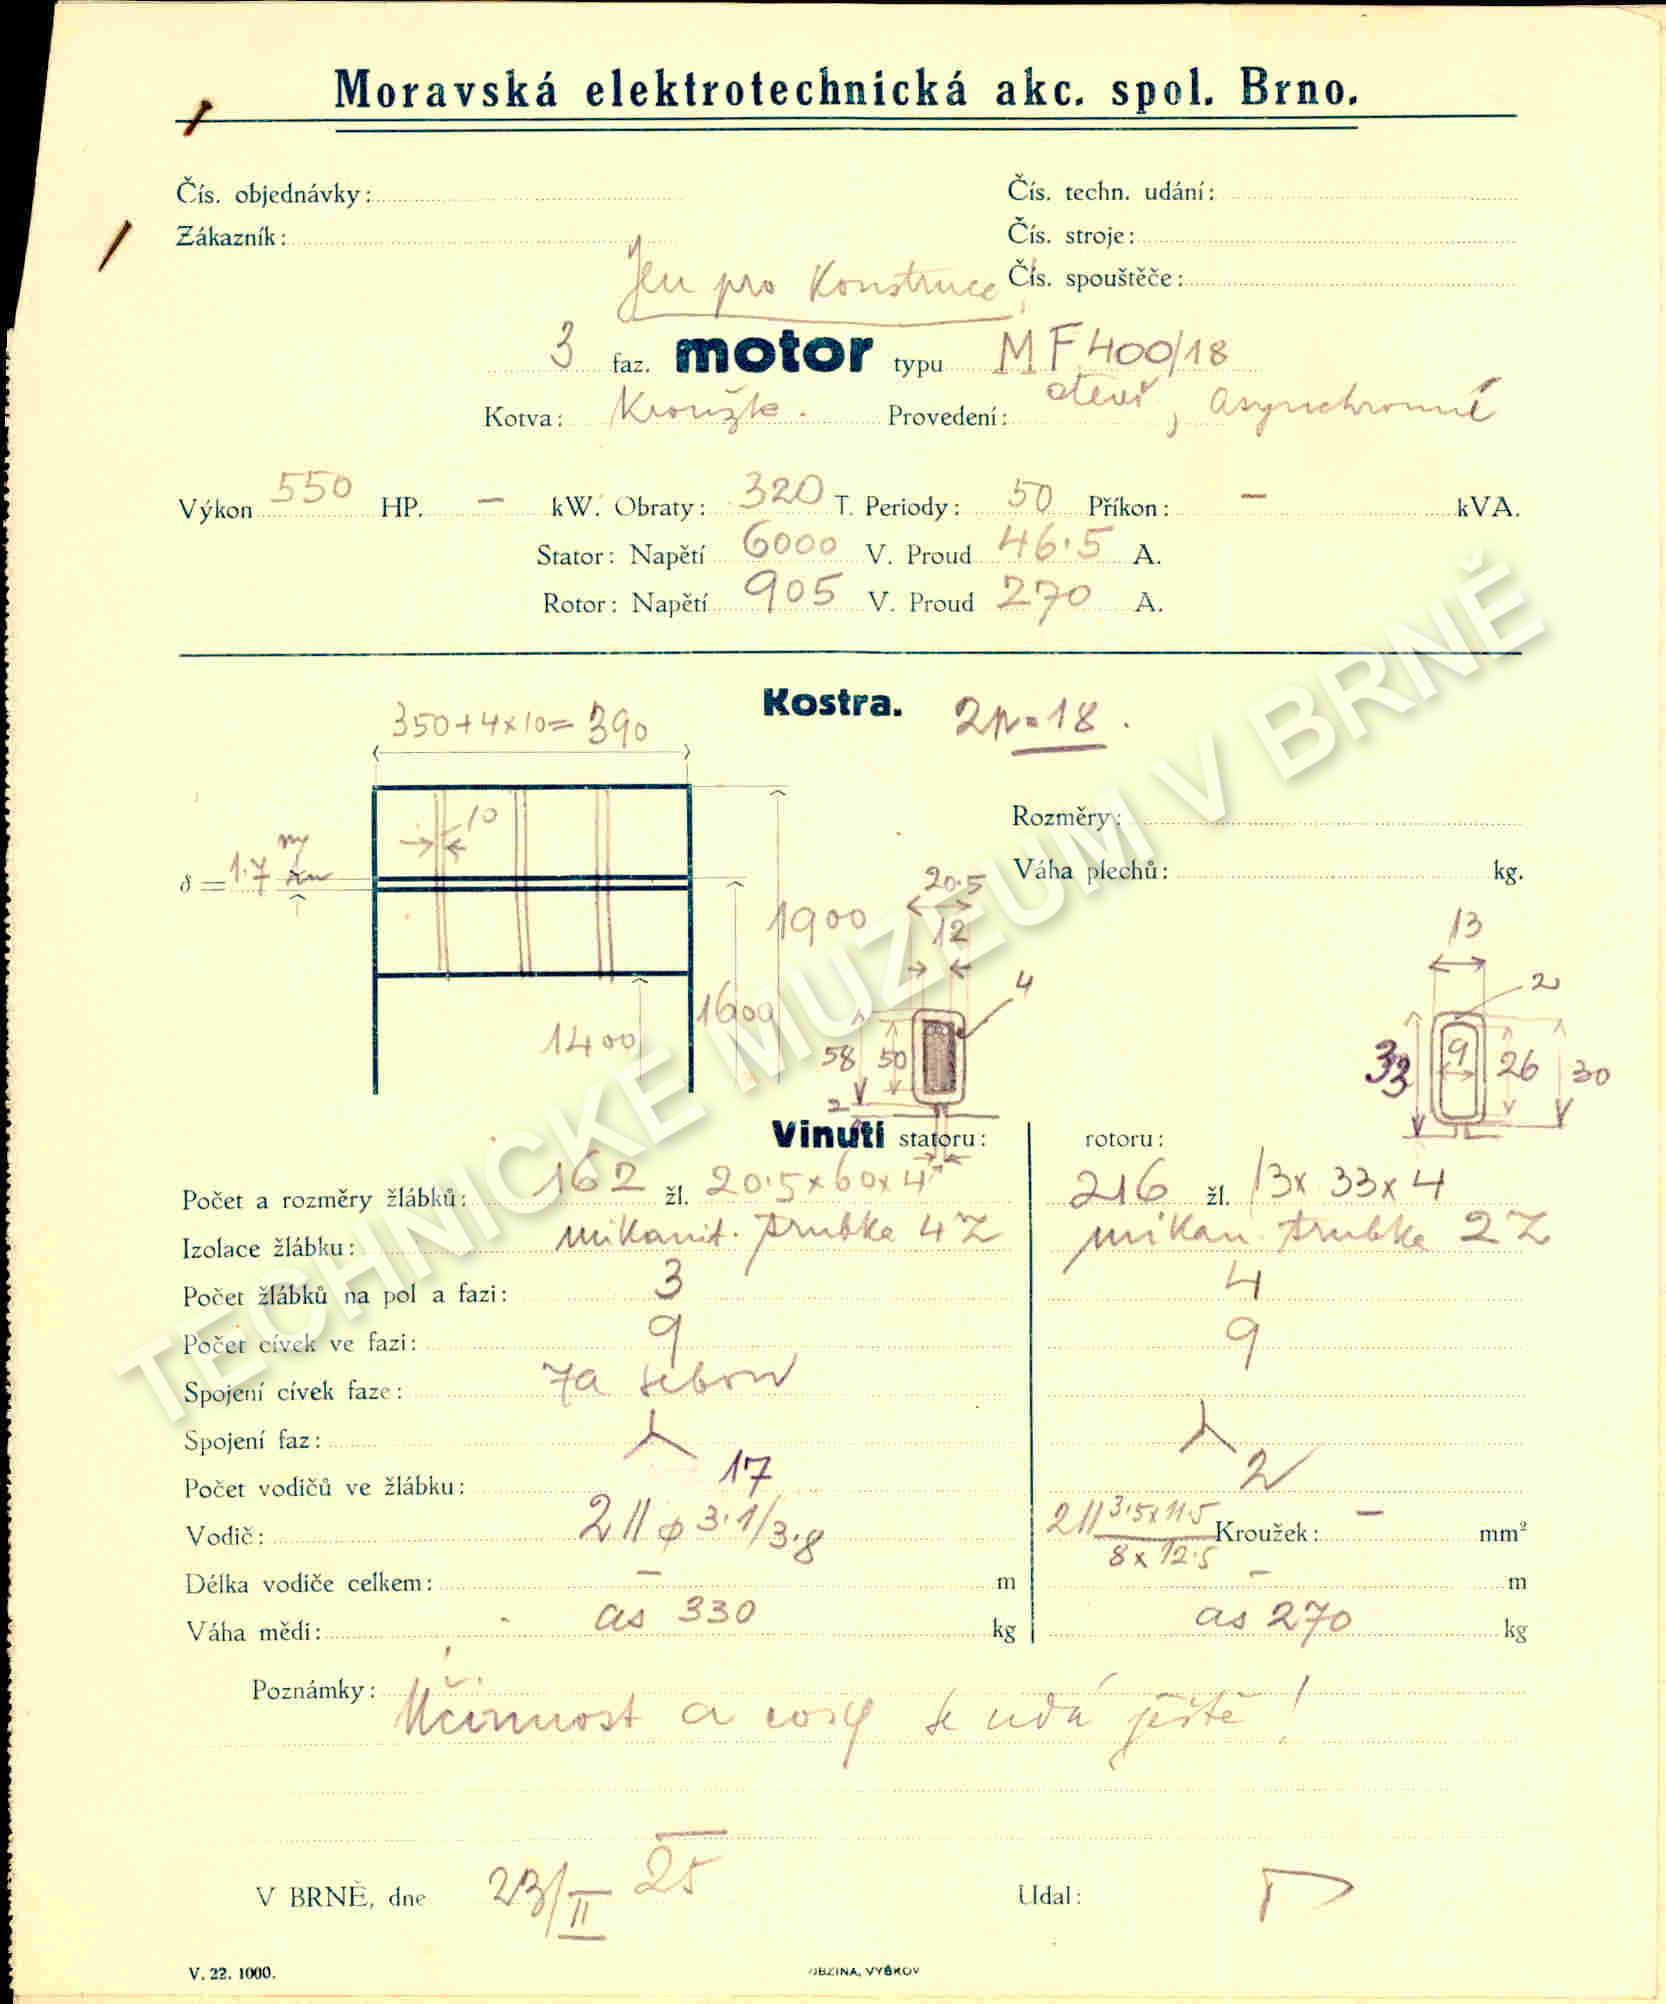 Moravská elektrotechnická akc. spol. Brno.
Čís. objednávky:
Čís. techn. udání:
Zákazník:
Čís. stroje:
Jen pro Konstrukce!
Čís. spouštěče:
3 faz. motor typu MF 400/18
Kotva: Kroužk. Provedení: otevř, asynchronní
Výkon 550 HP. – kW. Obraty: 320 T. Periody: 50 Příkon: – kVA.
Stator: Napětí 6000 V. Proud 46·5 A.
Rotor: Napětí 905 V. Proud 270 A.
Kostra. 2p=18.
350+4×10=390
10
Rozměry:
δ = 1·7
Váha plechů: kg.
20·5
12
4
1900
1600
1400
58 50
2
13
2
33 9 26 30
Vinutí statoru: rotoru:
Počet a rozměry žlábků: 162 žl. 20·5×60×4 216 žl. 13×33×4
Izolace žlábku: mikanit. trubka 4 mikan. trubka 2
Počet žlábků na pol a fazi: 3 4
Počet cívek ve fazi: 9 9
Spojení cívek faze: za sebou
Spojení faz:
Počet vodičů ve žlábku: 17 2
Vodič: 2 || ø 3·1/3·8 2 || 3·5×11·5 / 8×12·5 Kroužek: – mm²
Délka vodiče celkem: – m – m
Váha mědi: as 330 kg as 270 kg
Poznámky: Účinnost a cosφ se udá ještě!
V BRNĚ, dne 23/II 25 Udal:
V. 22. 1000.
OBZINA, VYŠKOV
TECHNICKÉ MUZEUM V BRNĚ